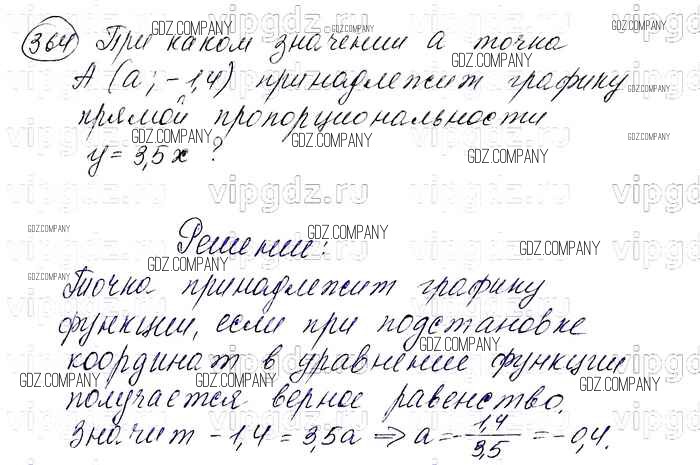 364 При каком значении а точка
А (а; -1,4) принадлежит графику
прямой пропорциональности
y = 3,5x ?
Решение:
Точка принадлежит графику
функции, если при подстановке
координат в уравнение функции
получается верное равенство.
Значит -1,4 = 3,5а ⇒ а = -1,4/3,5 = -0,4.
GDZ.COMPANY
vipgdz.ru